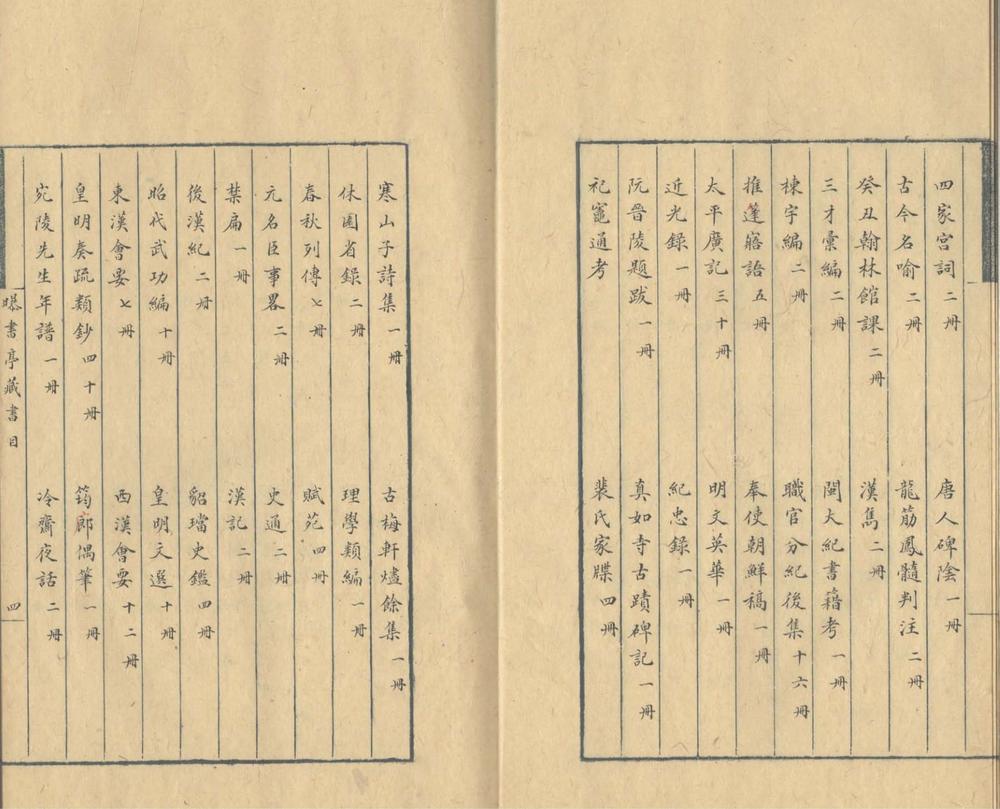 四家宮詞二冊 唐人碑陰一冊
古今名喻二冊 龍筋鳳髓判注二冊
癸丑翰林館課二冊 漢雋二冊
三才彙編二冊 閩大紀書籍考一冊
棟宇編二冊 職官分紀後集十六冊
推蓬寤語五冊 奉使朝鮮稿一冊
太平廣記三十冊 明文英華一冊
近光錄一冊 紀忠錄一冊
阮晉陵題跋一冊 真如寺古蹟碑記一冊
祀竈通考 裴氏家牒四冊
寒山子詩集一冊 古梅軒燼餘集一冊
休園省錄二冊 理學類編一冊
春秋列傳七冊 賦苑四冊
元名臣事畧二冊 史通二冊
禁扁一冊 漢記二冊
後漢紀二冊 貂璫史鑑四冊
昭代武功編十冊 皇明文選十冊
東漢會要七冊 西漢會要十二冊
皇明奏疏類鈔四十冊 筠廊偶筆一冊
宛陵先生年譜一冊 冷齋夜話二冊
曝書亭藏書目 四